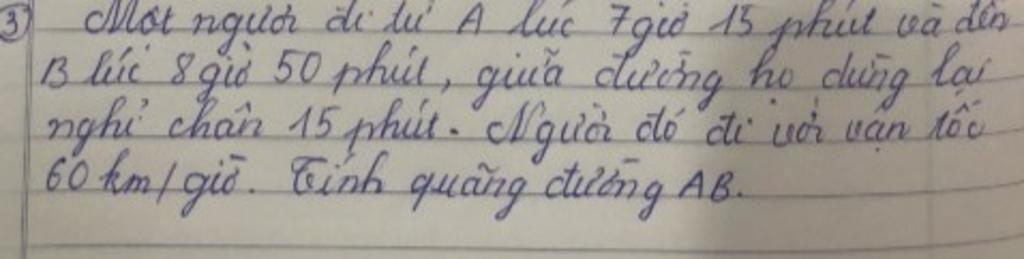 3 Một người đi từ A lúc 7 giờ 15 phút và đến
B lúc 8 giờ 50 phút, giữa đường họ dừng lại
nghỉ chân 15 phút. Người đó đi với vận tốc
60 km/giờ. Tính quãng đường AB.